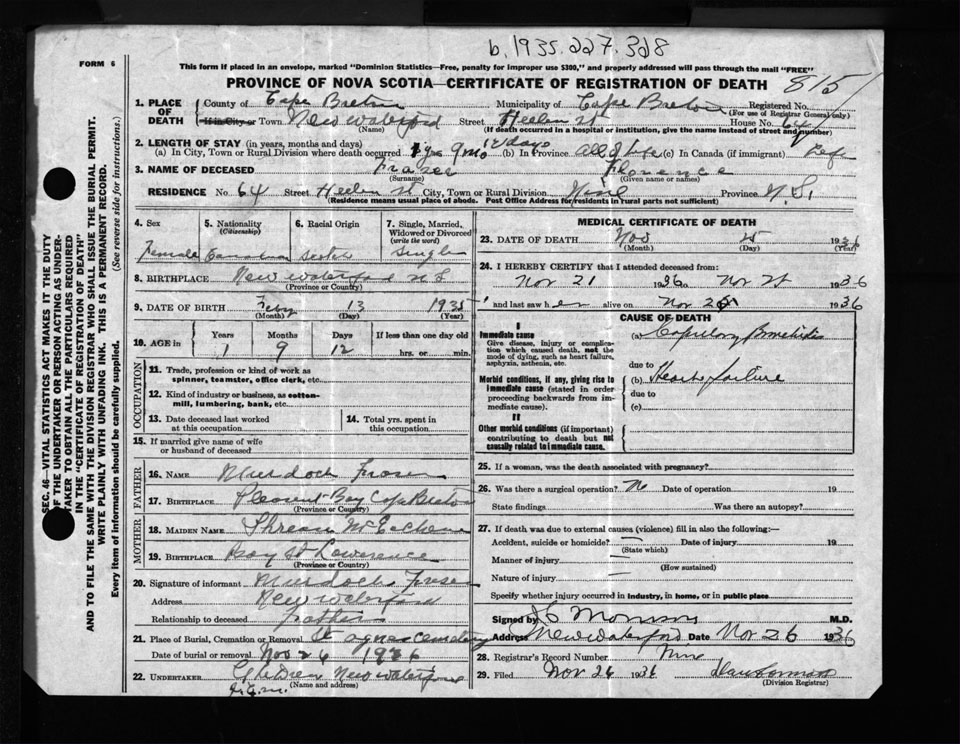 b. 1935.227.328
FORM 6
This form if placed in an envelope, marked "Dominion Statistics—Free, penalty for improper use $300," and properly addressed will pass through the mail "FREE"
PROVINCE OF NOVA SCOTIA—CERTIFICATE OF REGISTRATION OF DEATH
1. PLACE OF DEATH County of Cape Breton Municipality of Cape Breton Registered No.
(For use of Registrar General only)
If in City or Town New Waterford Street Heelen St House No. 64
(Name) (If death occurred in a hospital or institution, give the name instead of street and number)
2. LENGTH OF STAY (in years, months and days)
(a) In City, Town or Rural Division where death occurred 1 yr 9 mo 12 days (b) In Province All of Life (c) In Canada (if immigrant)
3. NAME OF DECEASED Fraser Florence
(Surname) (Given name or names)
RESIDENCE No. 64 Street Heelen St City, Town or Rural Division Province N.S.
(Residence means usual place of abode. Post Office Address for residents in rural parts not sufficient)
4. Sex Female
5. Nationality (Citizenship) Canadian
6. Racial Origin Scotch
7. Single, Married, Widowed or Divorced (write the word) Single
8. BIRTHPLACE New Waterford N S
(Province or Country)
9. DATE OF BIRTH Feby 13 1935
(Month) (Day) (Year)
10. AGE in Years Months Days If less than one day old
1 9 12 hrs. or min.
OCCUPATION
11. Trade, profession or kind of work as spinner, teamster, office clerk, etc.
12. Kind of industry or business, as cotton-mill, lumbering, bank, etc.
13. Date deceased last worked at this occupation
14. Total yrs. spent in this occupation
15. If married give name of wife or husband of deceased
FATHER
16. NAME Murdoch Fraser
17. BIRTHPLACE Pleasent Bay Cape Breton
(Province or Country)
MOTHER
18. MAIDEN NAME McEachern
19. BIRTHPLACE Bay St Lawerence
(Province or Country)
20. Signature of informant Murdoch Fraser
Address New Waterford
Relationship to deceased father
21. Place of Burial, Cremation or Removal St Agnes cemetery
Date of burial or removal Nov 26 1936
22. UNDERTAKER New Waterford
(Name and address)
MEDICAL CERTIFICATE OF DEATH
23. DATE OF DEATH Nov 25 1936
(Month) (Day) (Year)
24. I HEREBY CERTIFY that I attended deceased from:
Nov 21 1936 to Nov 25 1936
and last saw her alive on Nov 25 1936
CAUSE OF DEATH
I
Immediate cause
Give disease, injury or complication which caused death, not the mode of dying, such as heart failure, asphyxia, asthenia, etc.
(a) Capillary Bronchitis
due to
Morbid conditions, if any, giving rise to immediate cause (stated in order proceeding backwards from immediate cause).
(b) Heart failure
due to
(c)
II
Other morbid conditions (if important) contributing to death but not causally related to immediate cause.
25. If a woman, was the death associated with pregnancy?
26. Was there a surgical operation? No Date of operation 19
State findings Was there an autopsy?
27. If death was due to external causes (violence) fill in also the following:—
Accident, suicide or homicide? Date of injury 19
(State which)
Manner of injury
(How sustained)
Nature of injury
Specify whether injury occurred in industry, in home, or in public place
Signed by M.D.
Address New Waterford Date Nov 26 1936
28. Registrar's Record Number
29. Filed Nov 26 1936
(Division Registrar)
SEC. 46—VITAL STATISTICS ACT MAKES IT THE DUTY
OF THE UNDERTAKER OR PERSON ACTING AS UNDER-
TAKER TO OBTAIN ALL THE PARTICULARS REQUIRED
IN THE "CERTIFICATE OF REGISTRATION OF DEATH"
AND TO FILE THE SAME WITH THE DIVISION REGISTRAR WHO SHALL ISSUE THE BURIAL PERMIT.
WRITE PLAINLY WITH UNFADING INK. THIS IS A PERMANENT RECORD.
Every item of information should be carefully supplied. (See reverse side for instructions.)